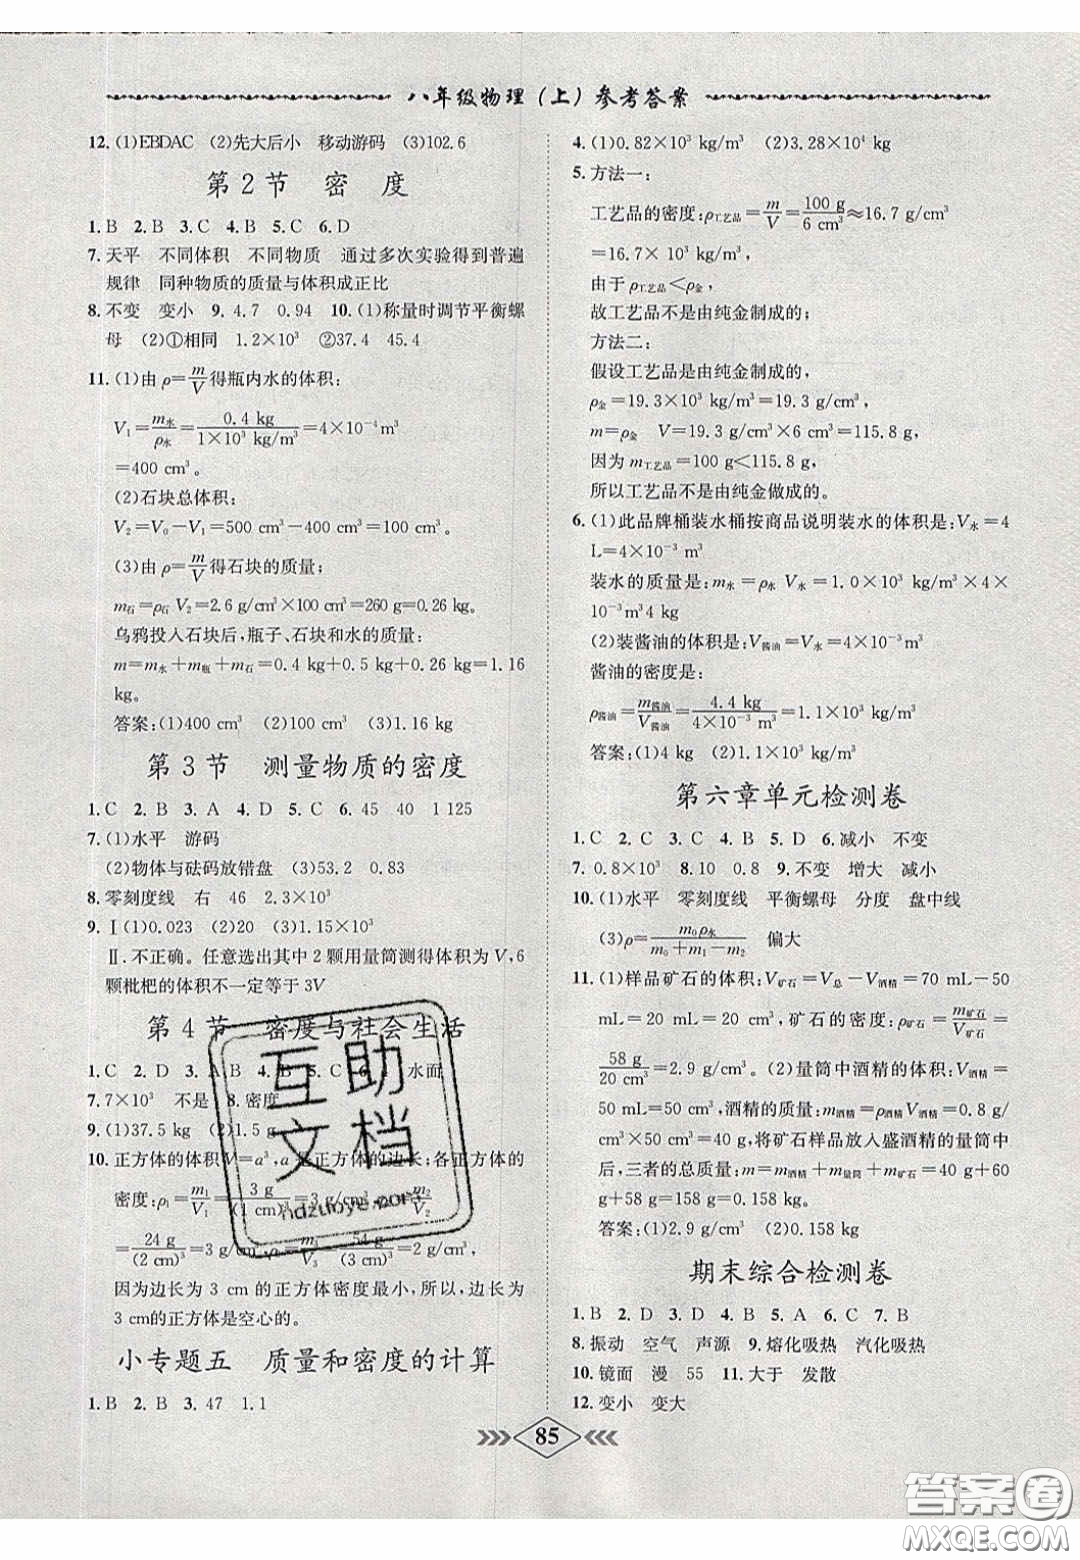 八年级物理(上)参考答案
12. (1)EBDAC (2)先大后小 移动游码 (3)102.6
第2节 密 度
1. B 2. B 3. C 4. B 5. C 6. D
7. 天平 不同体积 不同物质 通过多次实验得到普遍
规律 同种物质的质量与体积成正比
8. 不变 变小 9. 4.7 0.94 10. (1)称量时调节平衡螺
母 (2)①相同 1.2×10³ ②37.4 45.4
11. (1)由 ρ=m/V得瓶内水的体积:
V₁=m水/ρ水=0.4 kg/1×10³ kg/m³=4×10⁻⁴m³
=400 cm³。
(2)石块总体积:
V₂=V₀-V₁=500 cm³-400 cm³=100 cm³
(3)由 ρ=m/V得石块的质量;
m石=ρ石 V₂=2.6 g/cm³×100 cm³=260 g=0.26 kg。
乌鸦投入石块后,瓶子、石块和水的质量:
m=m水+m瓶+m石=0.4 kg+0.5 kg+0.26 kg=1.16
kg。
答案:(1)400 cm³ (2)100 cm³ (3)1.16 kg
第3节 测量物质的密度
1. C 2. B 3. A 4. D 5. C 6. 45 40 1 125
7. (1)水平 游码
(2)物体与砝码放错盘 (3)53.2 0.83
8. 零刻度线 右 46 2.3×10³
9. Ⅰ(1)0.023 (2)20 (3)1.15×10³
Ⅱ. 不正确。任意选出其中2颗用量筒测得体积为V,6
颗枇杷的体积不一定等于3V
第4节 密度与社会生活
1. C 2. D 3. A 4. B 5. C 6. 水面
7. 7×10³ 不是 8. 密度
9. (1)37.5 kg (2)1.5 g
10. 正方体的体积V=a³,a为正方体的边长;各正方体的
密度:ρ₁=m₁/V₁=3 g/(1 cm)³=3 g/cm³ m₂/V₂
=24 g/(2 cm)³=3 g/cm³,ρ₃=m₃/V₃ 54 g/(3 cm)³=2 g/cm³,
因为边长为3 cm的正方体密度最小,所以,边长为
3 cm的正方体是空心的。
小专题五 质量和密度的计算
1. B 2. B 3. 47 1.1
4. (1)0.82×10³ kg/m³ (2)3.28×10⁴ kg
5. 方法一:
工艺品的密度:ρ工艺品=m/V=100 g/6 cm³≈16.7 g/cm³
=16.7× 10³ kg/m³
由于 ρ工艺品<ρ金,
故工艺品不是由纯金制成的;
方法二:
假设工艺品是由纯金制成的,
ρ金=19.3×10³ kg/m³=19.3 g/cm³,
m=ρ金 V=19.3 g/cm³×6 cm³=115.8 g,
因为m工艺品=100 g<115.8 g,
所以工艺品不是由纯金做成的。
6. (1)此品牌桶装水桶按商品说明装水的体积是:V水=4
L=4×10⁻³ m³
装水的质量是:m水=ρ水 V水=1.0×10³ kg/m³×4×
10⁻³ m³4 kg
(2)装酱油的体积是:V酱油=V水=4×10⁻³ m³
酱油的密度是:
ρ酱油=m酱油/V酱油=4.4 kg/4×10⁻³ m³=1.1×10³ kg/m³
答案:(1)4 kg (2)1.1×10³ kg/m³
第六章单元检测卷
1. C 2. C 3. C 4. B 5. D 6. 减小 不变
7. 0.8×10³ 8. 10 0.8 9. 不变 增大 减小
10. (1)水平 零刻度线 平衡螺母 分度 盘中线
(3)ρ=m₀ρ水/m₀+m₁-m₂ 偏大
11. (1)样品矿石的体积:V矿石=V总-V酒精=70 mL-50
mL=20 mL=20 cm³,矿石的密度:ρ矿石=m矿石/V矿石=
58 g/20 cm³=2.9 g/cm³。(2)量筒中酒精的体积:V酒精
=50 mL=50 cm³,酒精的质量:m酒精=ρ酒精V酒精=0.8 g/
cm³×50 cm³=40 g,将矿石样品放入盛酒精的量筒中
后,三者的总质量:m=m酒精+m量筒+m矿石=40 g+60
g+58 g=158 g=0.158 kg。
答案:(1)2.9 g/cm³ (2)0.158 kg
期末综合检测卷
1. B 2. D 3. D 4. B 5. A 6. C 7. B
8. 振动 空气 声源 9. 熔化吸热 汽化吸热
10. 镜面 漫 55 11. 大于 发散
12. 变小 变大
85
互助
文档
答案卷
MXQE.COM